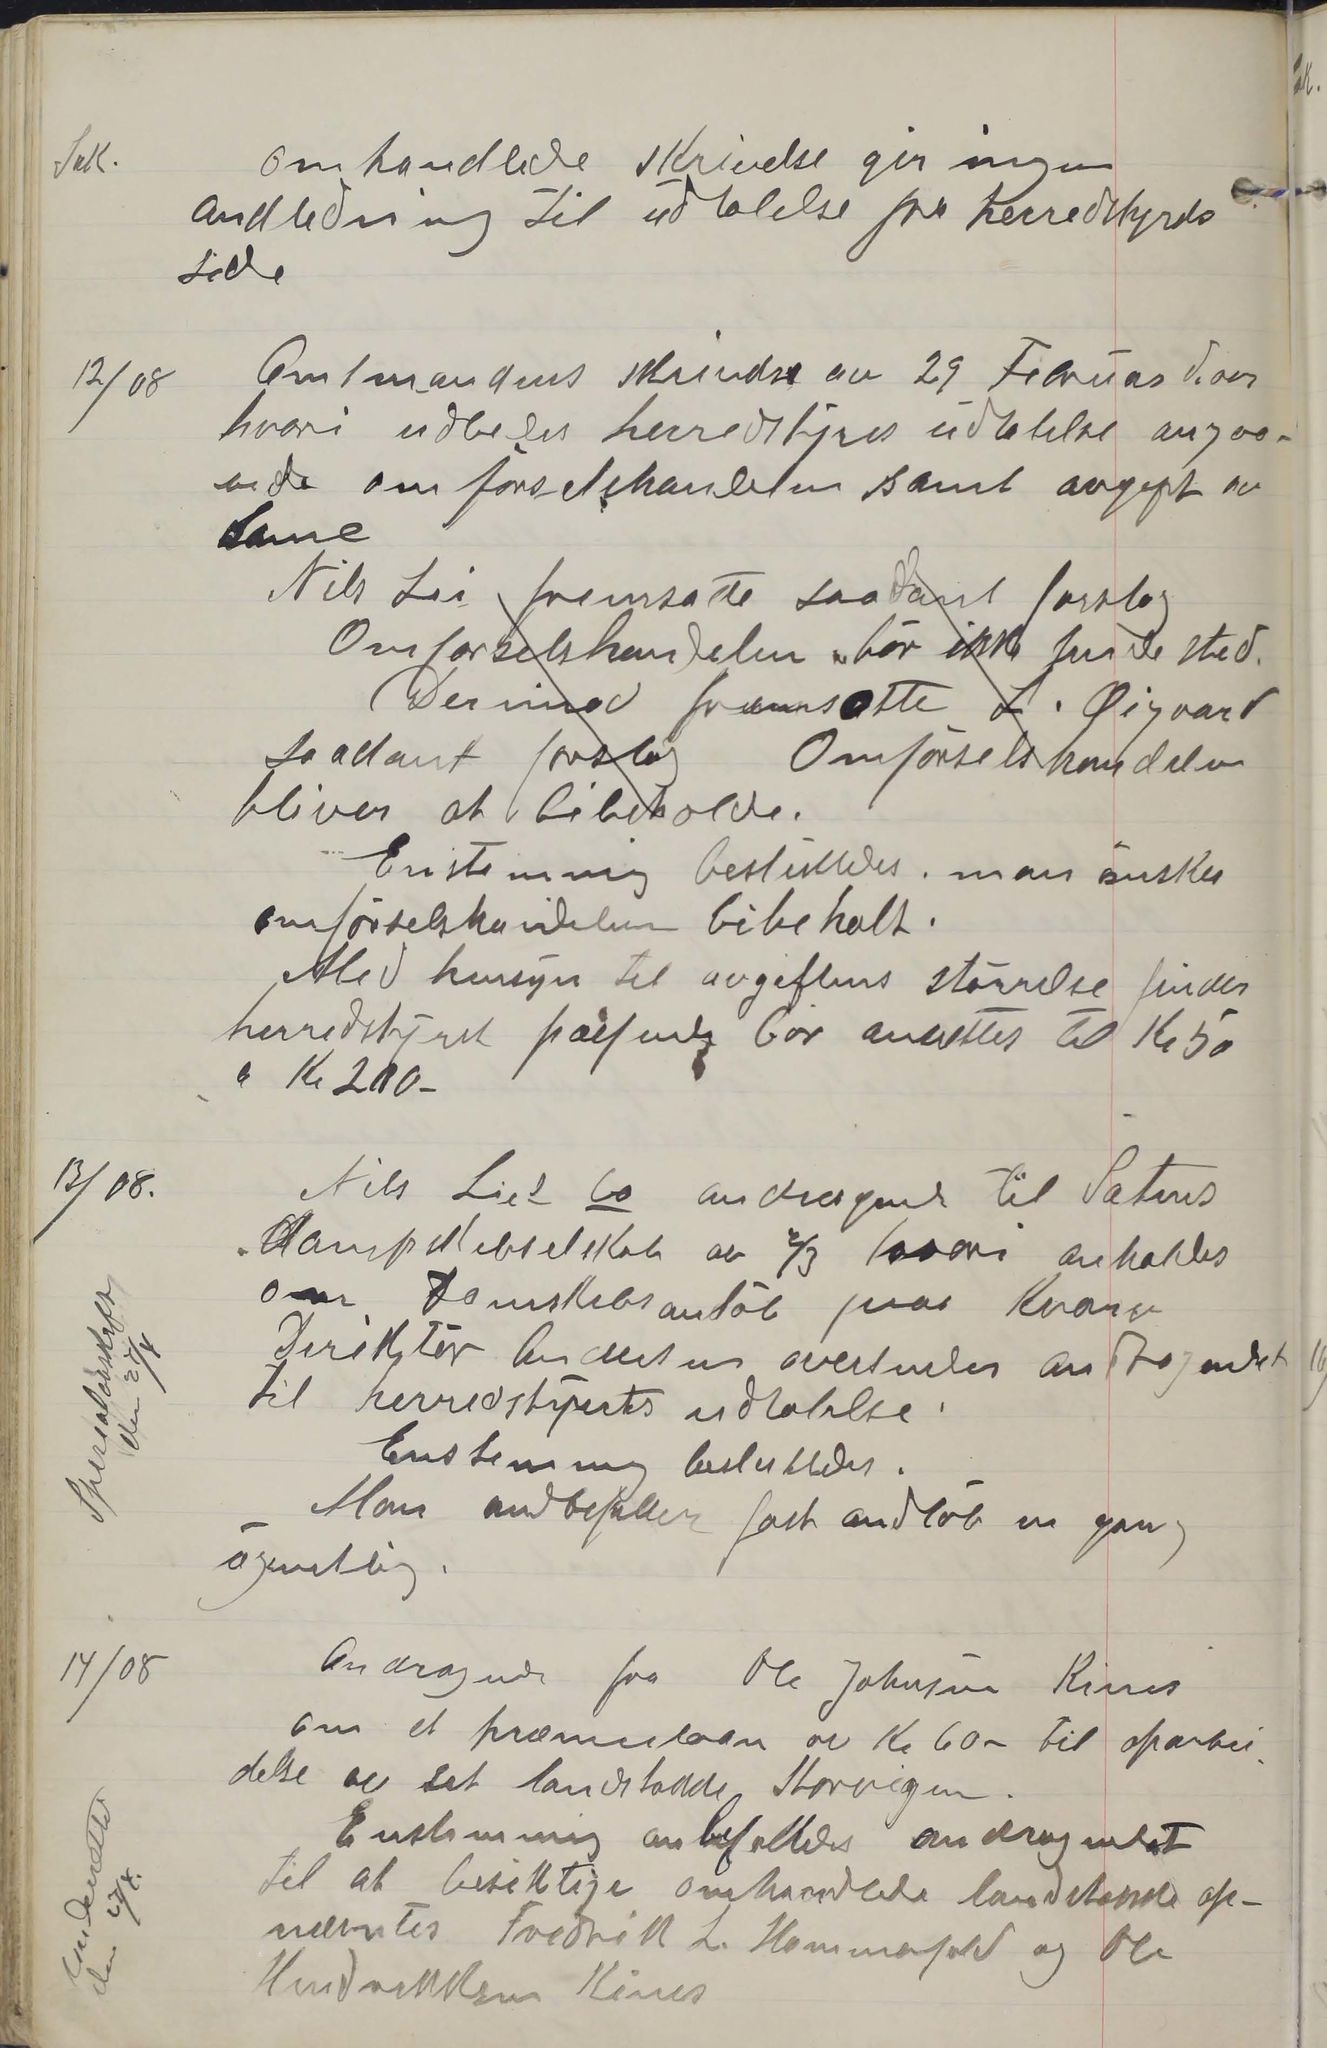 Sak.
omhandlede skrivelse gir ingen
andledning til udtalelse fra herredstyrds
side
12/08
Amtmandens skrivelse av 29 Februar d.aar
hvori udbedes herredstyres udtalelse angaa-
ende omförselshandelen samt avgift av
same
Nils Lie fremsatte saadant forslag
Omforselshandelen bör ikke finde sted.
Derimod fremsatte L. Øigvard
saadant forslag Omförselshandelen
bliver at bibeholde.
Enstemmig besluttedes. man önsker
omförselshandelen bibeholt.
Med hensyn til avgiftens störrelse finder
herredstyret bör ansettes til Kr 50
a Kr 200-
13/08.
Nils Lies Co andragende til Saltens
Dampskibselskab av 2/3 hvori anholdes
om Damskibsanlöb paa Kvarv
Direktör Andersen oversender andragendet
til herredstyrets udtalelse.
Enstemmig besluttedes.
Man andbefaller fast andlöb en gang
ugentlig.
14/08
Andragende fra Ole Johnsen Rines
om et præmielaan av Kr 60- til oparbei-
delse av sit landstøkke Storvigen.
Enstemmig anbefaltedes andragendet
til at besiktige omhandlede landstøkke op-
nævntes Fredrik L. Hammerfald og Ole
Hendrikksen Rines
Spesialudskrift
den 27/4
Undersøttes
den 27/4.